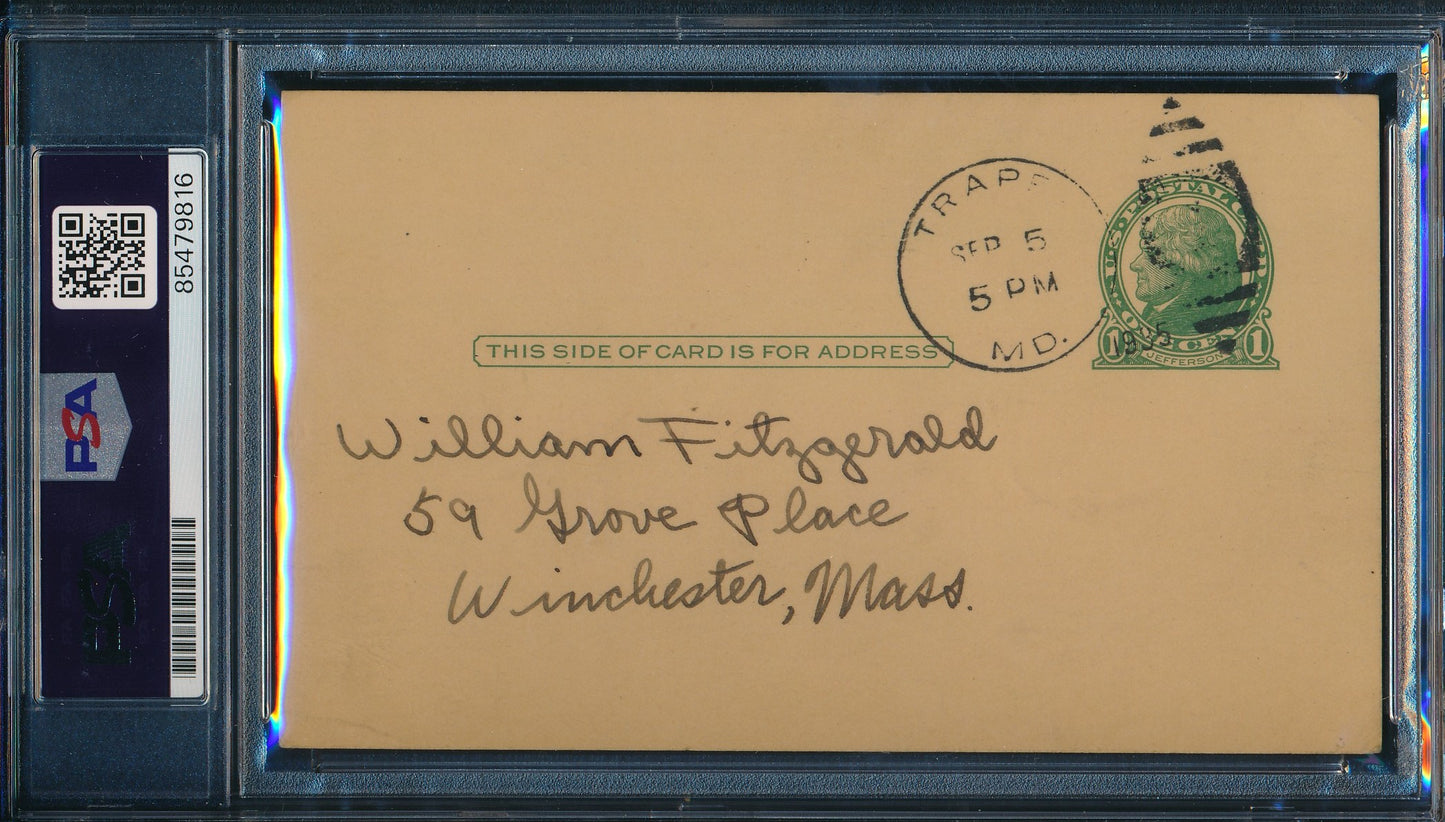 85479816
PSA
PSA
TRAPPE
SEP 5
5 PM
MD.
1935
U.S. POSTAL CARD
ONE CENT
1 1
JEFFERSON
THIS SIDE OF CARD IS FOR ADDRESS
William Fitzgerald
59 Grove Place
Winchester, Mass.